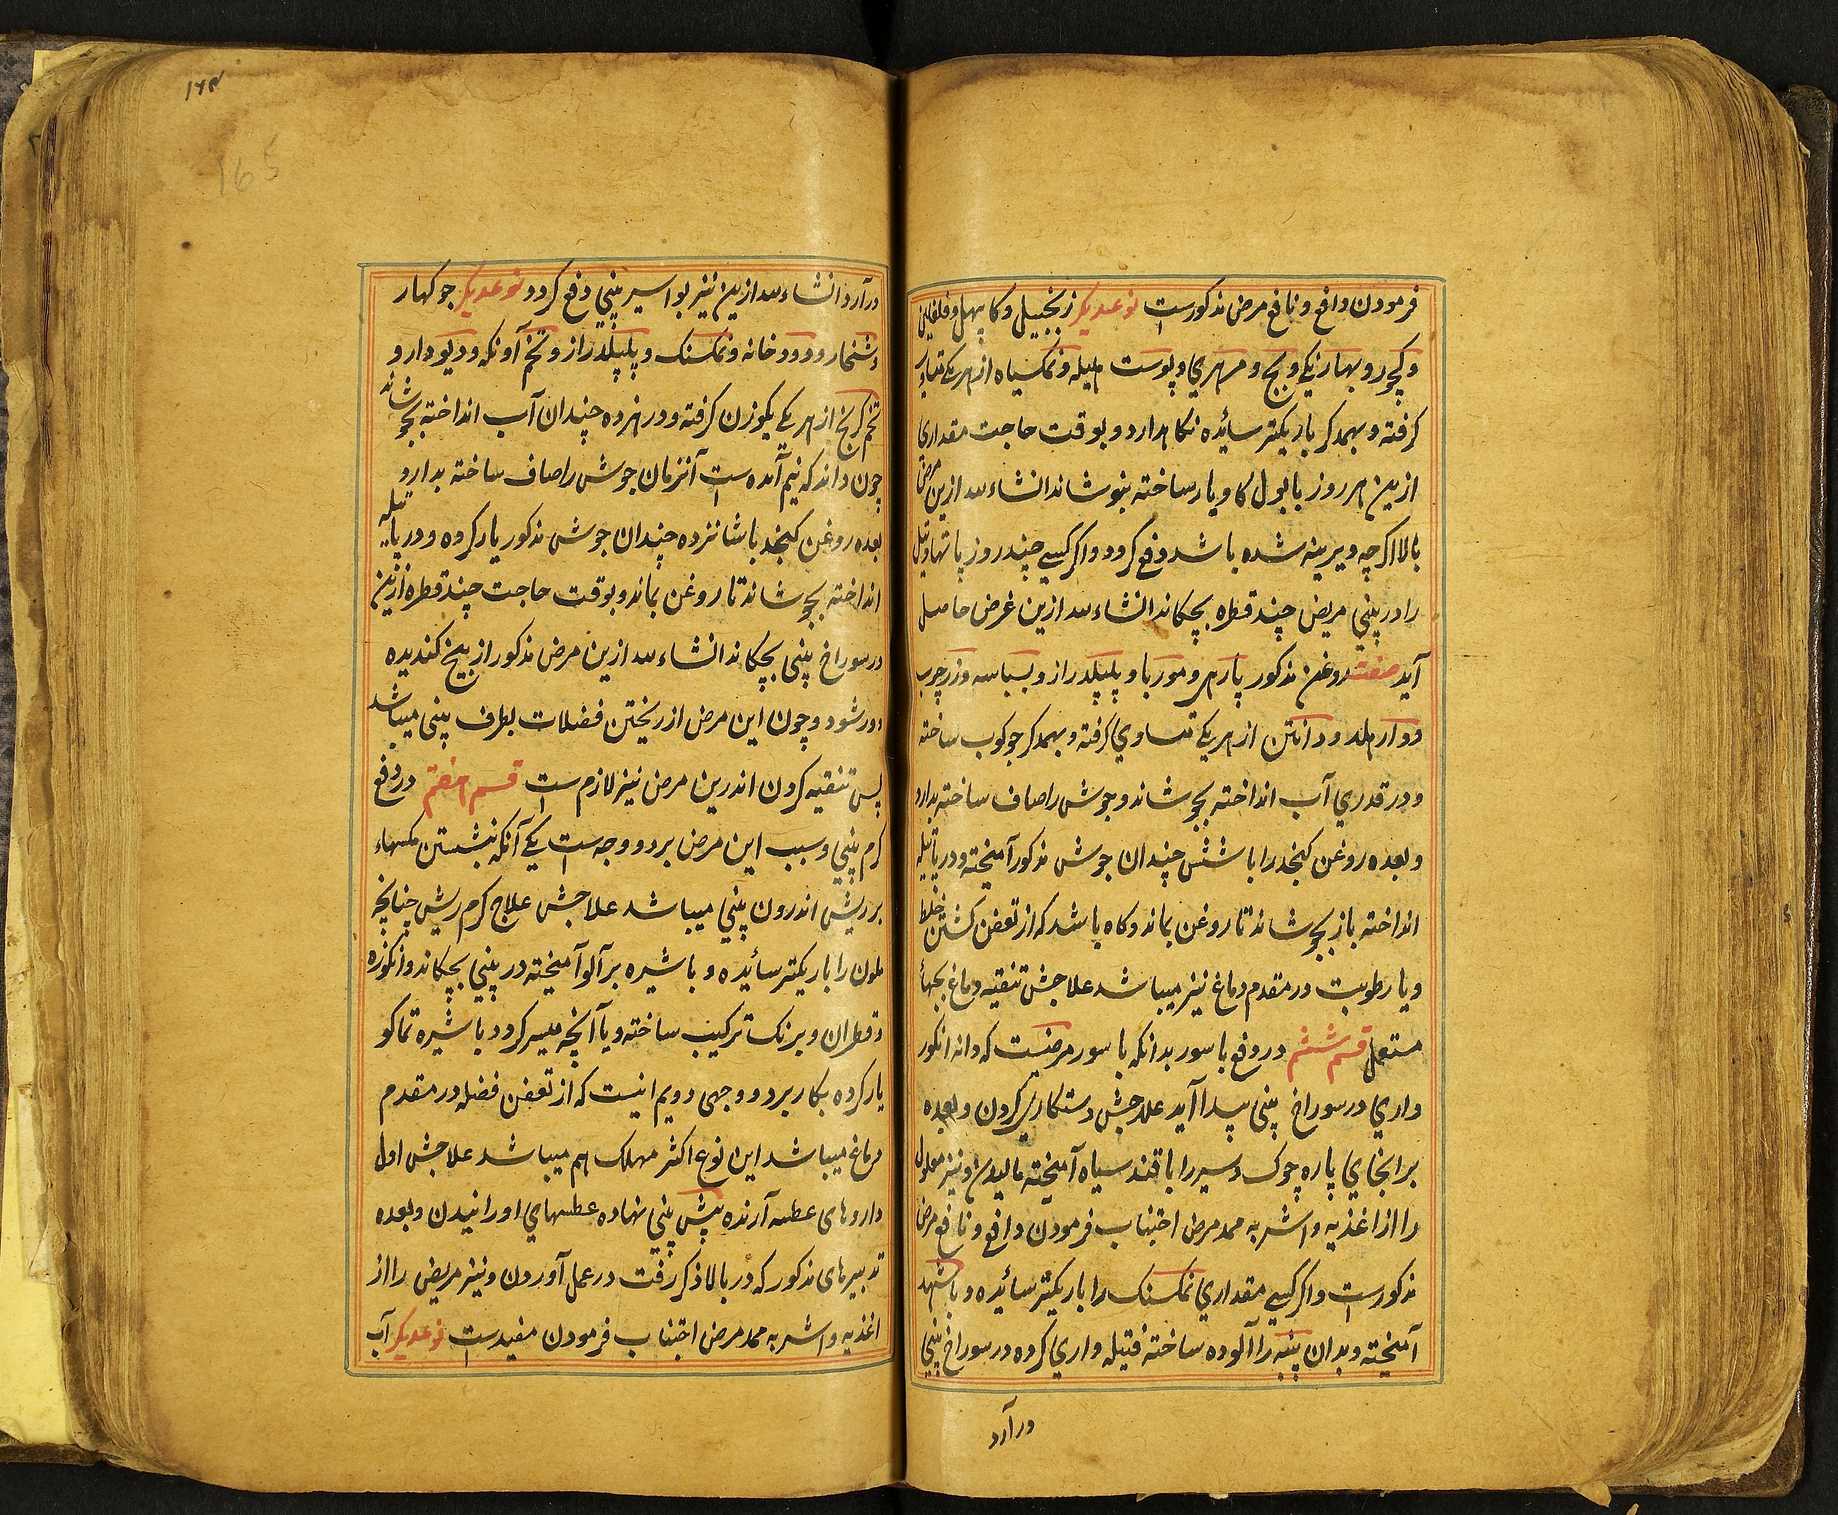 فرمودن دافع و نافع مرض مذکورست نوعدیکر زنجبیل و کاپهل و فلفلین
و کچور و بهارنکی و بج و مرهری و پوست هلیله و نمکسیاه از هر یکے
کرفته و بهمدکر باریکتر سائیده نکاهدارد و بوقت حاجت مقداری
ازین هر روز با بول کاو یار ساخته بنوشاند انشاءالله ازین مرض
بالا اکرچه دیرینه شده باشد دفع کردد و اکر کسے چند روز
را در بینی مریض چند قطره بچکاند انشاءالله ازین غرض حاصل
آید صنعت روغن مذکور پارهر و موربا و پلپلدراز و بسباسه و زردچوب
و دارهلد و دانتن از هر یکے تساوی کرفته و بهمدکر جوکوب ساخته
و در قدری آب انداخته بجوشاند و جوش را صاف ساخته بدارد
و بعده روغن کنجد را با شش چندان جوش مذکور آمیخته و در پاتیله
انداخته باز بجوشاند تا روغن بماند و کاه باشد که از تعفن کشتن خلط
و یا رطوبت در مقدم دماغ نیز میباشد علاجش تنقیه دماغ
مستعمل قسم ششم در دفع باسور بدانکه باسور مرضیست که دانه انکور
واری در سوراخ بینی پیدا آید علاجش دستکاری کردن و بعده
بر انجای پاره چوک و سیر را با قند سیاه آمیخته مالیدن و نیز معلول
را از اغذیه و اشربه ممد مرض اجتناب فرمودن دافع و نافع مرض
مذکورست و اکر کسے مقداری نمکسنک را باریکتر سائیده و باشهد
آمیخته و بدان پنبه را آلوده ساخته فتیله واری کرده در سوراخ بینی
در آرد
۱۶۴
165
در آرد انشاءالله ازین نیز بواسیر بینی دفع کردد نوعدیکر جوکهار
و شنخار و دودخانه و نمکسنک و پلپلدراز و تخم آونکه و دیودارو
تخم کرنج از هر یکے یکوزن کرفته و در نزده چندان آب انداخته بجوشاند
چون داند که نیم آمده ست آنزمان جوش را صاف ساخته بدارد
بعده روغن کنجد با شانزده چندان جوش مذکور یار کرده و در پاتیله
انداخته بجوشاند تا روغن بماند و بوقت حاجت چند قطره ازین
در سوراخ بینی بچکاند انشاءالله ازین مرض مذکور از بیخ کندیده
دور شود و چون این مرض از ریختن فضلات بطرف بینی میباشد
پس تنقیه کردن اندرین مرض نیز لازم ست قسم هفتم در دفع
کرم بینی و سبب این مرض بر دو وجه ست یکے آنکه نشستن مکسهاء
بر ریش اندرون بینی میباشد علاجش علاج کرم ریش چنانچه
ملون را باریکتر سائیده و با شیره برآلو آمیخته در بینی بچکاند و انکوزه
و قطران و برنک ترکیب ساخته و یا آنچه میسر کردد با شیره تماکو
یار کرده بکار برد و وجهی دویم انیست که از تعفن فضله در مقدم
دماغ میباشد این نوع اکثر مهلک هم میباشد علاجش اول
داروهای عطسه آرنده پیش بینی نهاده عطسهای اورانیدن و بعده
تدبیرهای مذکور که در بالا ذکر رفت در عمل آوردن و نیز مریض را از
اغذیه و اشربه ممد مرض اجتناب فرمودن مفیدست نوعدیکر آب